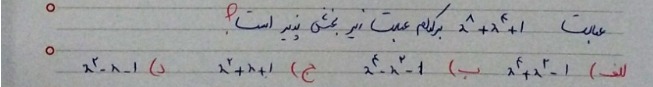 عبارت x⁸+x⁴+1 بر کدام عبارت زیر بخش پذیر است؟
الف) x⁴+x²-1 ب) x⁴-x²-1 ج) x²+x+1 د) x²-x-1